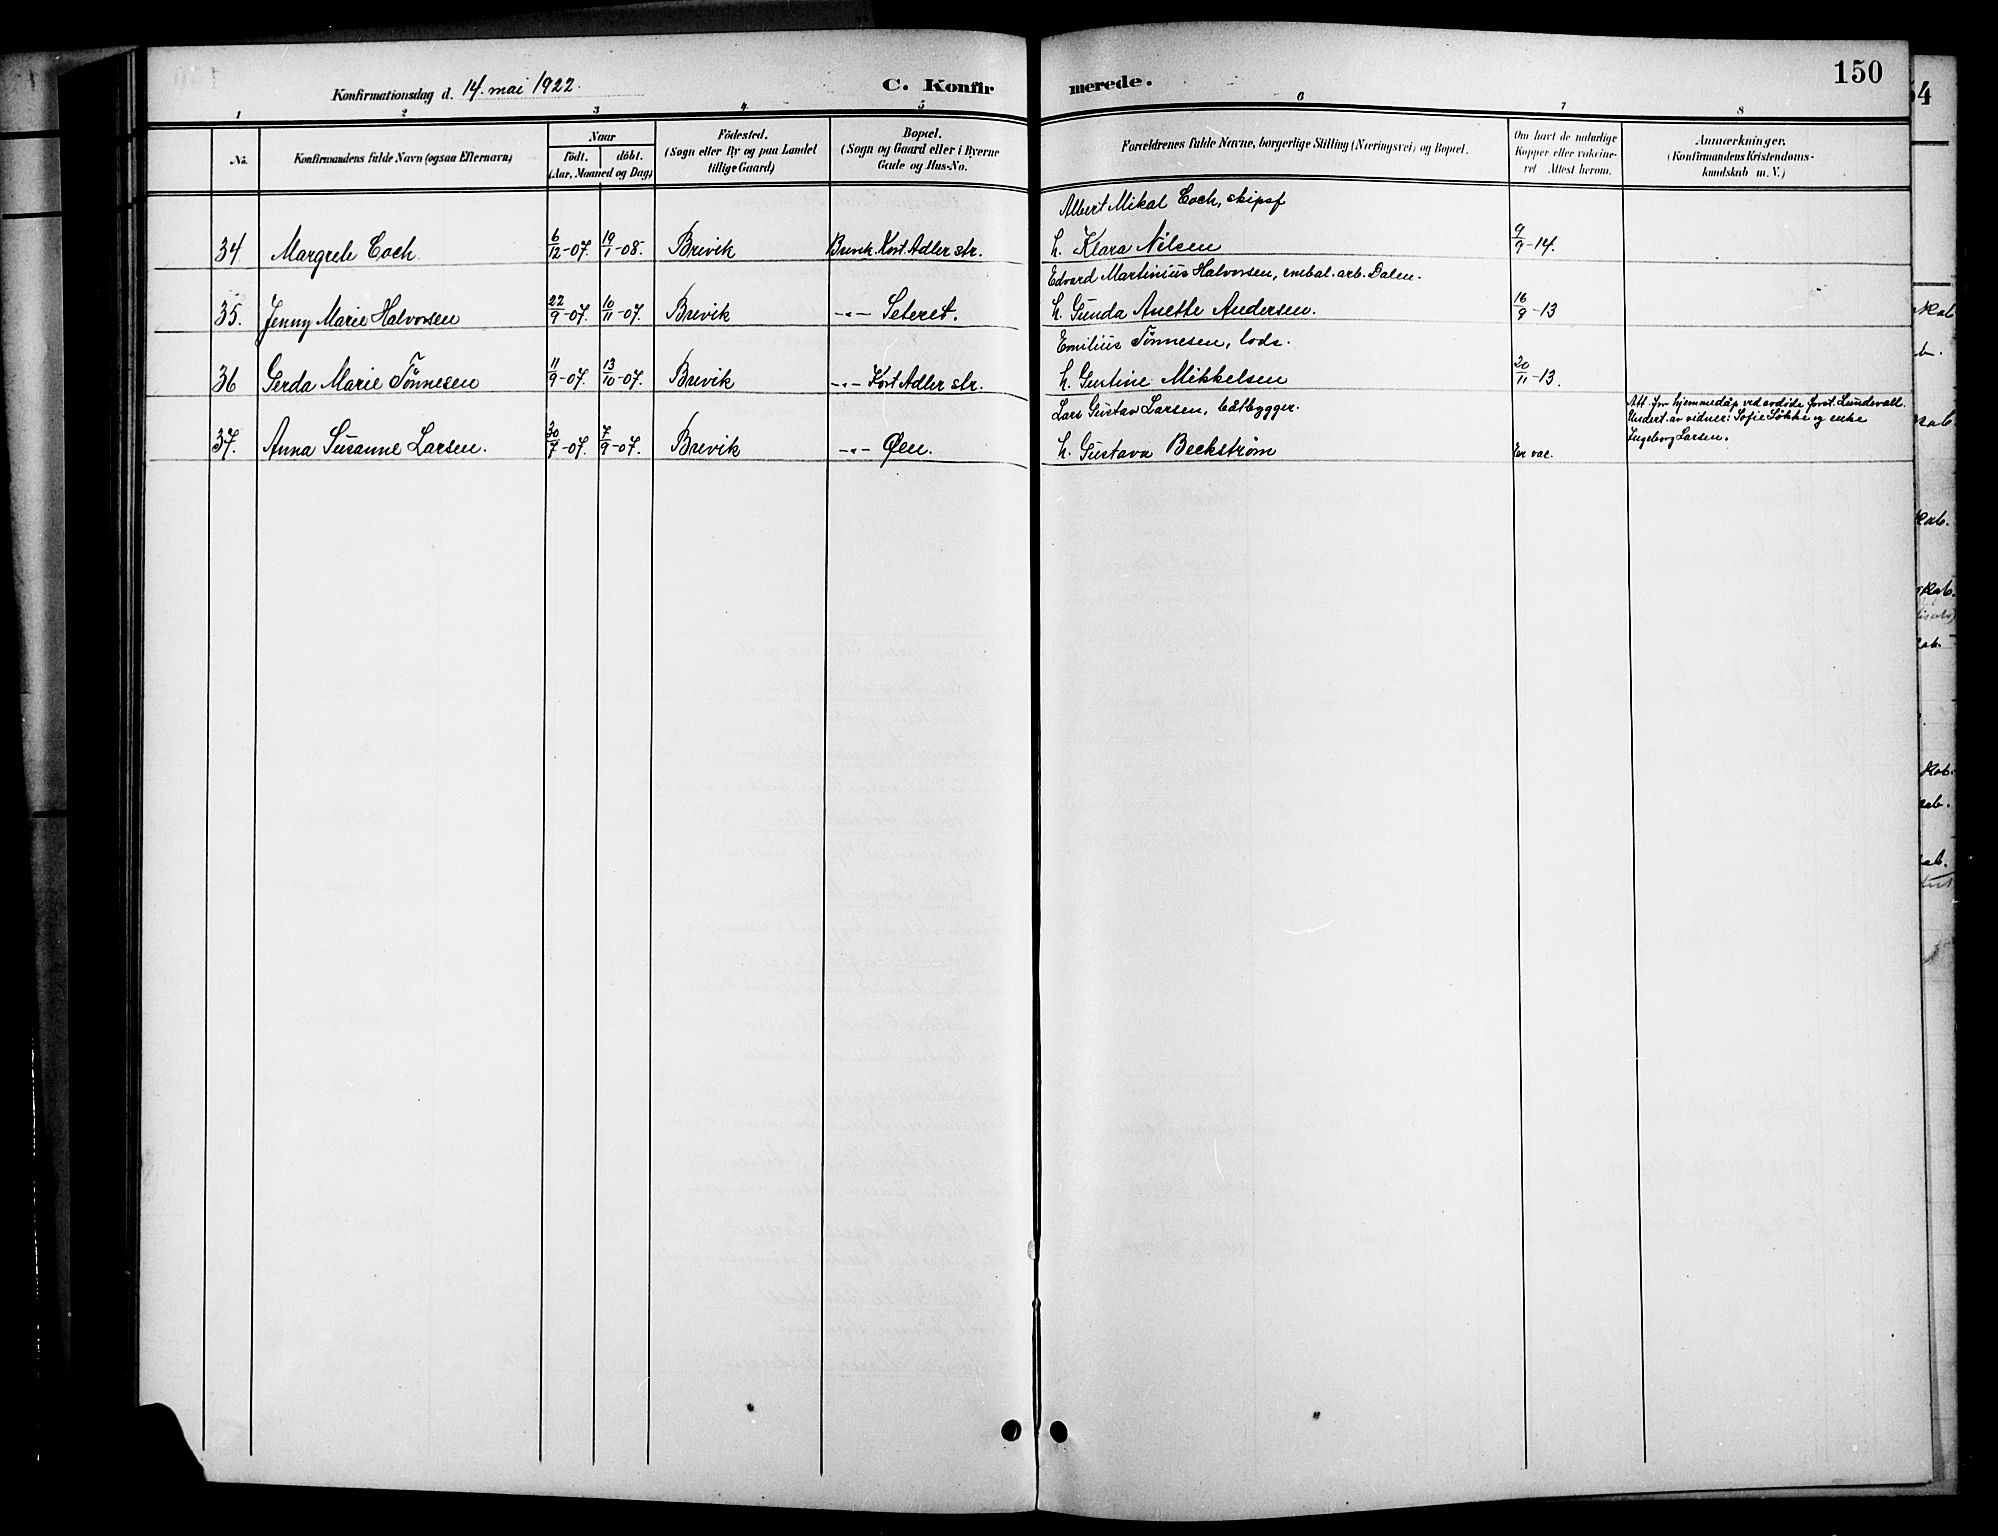 Konfirmationsdag d. 14. mai 1922.
C. Konfirmerede.
150
1 2 3 4 5 6 7 8
No. Konfirmandens fulde Navn (ogsaa Efternavn)
Naar
födt. döbt.
(Aar, Maaned og Dag)
Födested.
(Sogn eller By og paa Landet
tillige Gaard)
Bopæl.
(Sogn og Gaard eller i Byerne
Gade og Hus-No.
Forældrenes fulde Navne, borgerlige Stilling (Næringsvei) og Bopæl.
Om havt de naturlige
Kopper eller vakcine-
ret Attest herom.
Anmærkninger.
(Konfirmandens Kristendoms-
kundskab m. V.)
Albert Mikal Coch, skipsf
34 Margrete Coch. 6/12-07. 19/1-08. Brevik Brevik. Kort Adler str. h. Klara Nilsen 9/9-14.
Edvard Martinius Halvorsen, cembal. arb. Dalen.
35. Jenny Marie Halvorsen 22/9-07. 10/11-07. Brevik -"- Seteret. h. Gunda Anette Andersen. 16/9-13
Emilius Tönnesen, lods.
36 Gerda Marie Tönnesen 11/9-07. 13/10-07. Brevik -"- Kort Adler str. h. Gustine Mikkelsen 20/11-13.
Lars Gustav Larsen, båtbygger.
37. Anna Susanne Larsen. 30/7-07. 7/9-07. Brevik -"- Øen. h. Gustava Beckstrøm Er vac.
Att. for hjemmedåp ved avdøde forst. Lundevall.
Undert. av vidner: Sofie Løkke og enke
Ingeborg Larsen.